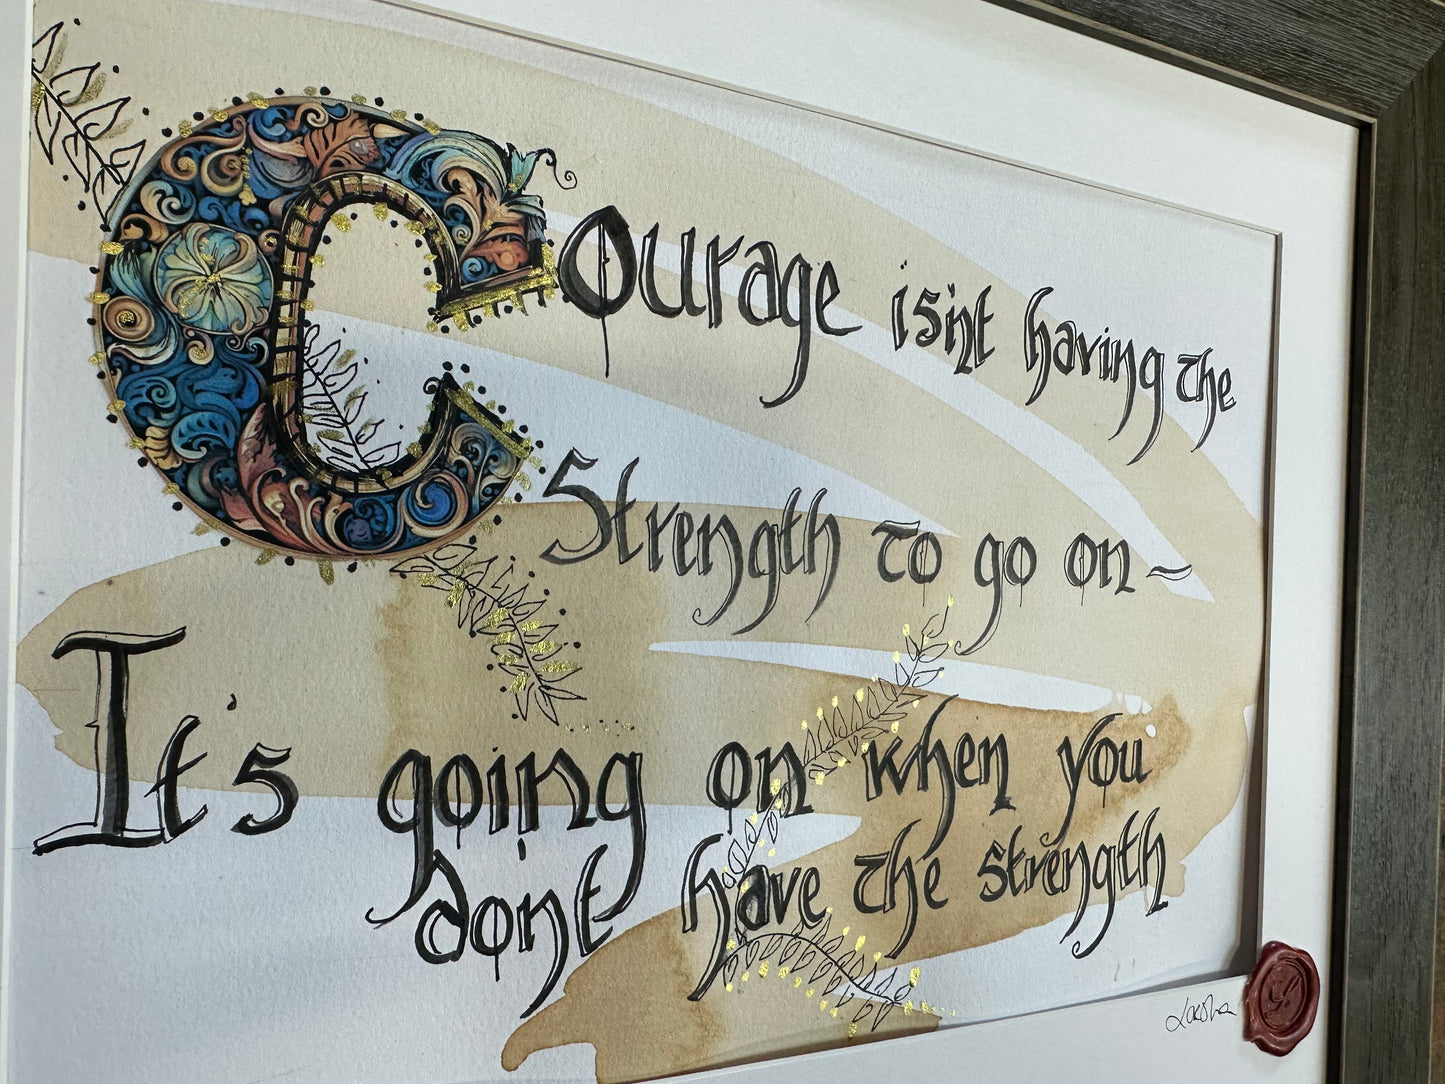 Courage isn't having the
Strength to go on~
It's going on when you
don't have the strength